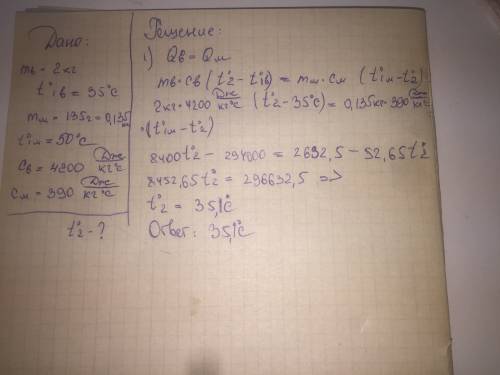 Дано:
mв = 2кг
t°1в = 35°C
mм = 135г = 0,135
кг
t°1м = 50°C
cв = 4200 Дж/кг°C
cм = 390 Дж/кг°C
t°2 - ?
Решение:
1) Qв = Qм
mв · cв (t°2 - t°1в) = mм · cм (t°1м - t°2)
2кг · 4200 Дж/кг°C (t°2 - 35°C) = 0,135кг · 390 Дж/кг°C
· (t°1м - t°2)
8400t°2 - 294000 = 2632,5 - 52,65t°2
8452,65t°2 = 296632,5 =>
t°2 = 35,1°C
Ответ: 35,1°C